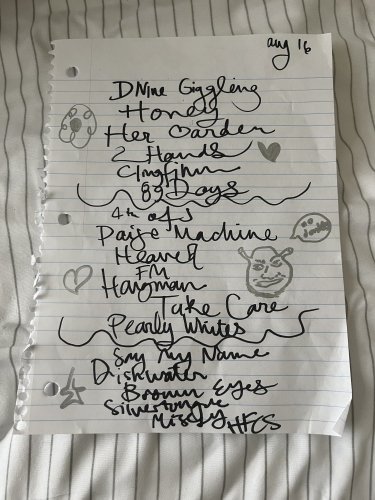 aug 16
DNine Giggling
Honey
Her Garden
2 Hands
Clingfilm
89 Days
4th of J
Paige Machine
Heaven
FM
Hangman
Take Care
Pearly Whites
Say My Name
Dishwater
Brown Eyes
Silvertongue
Missy HFCS